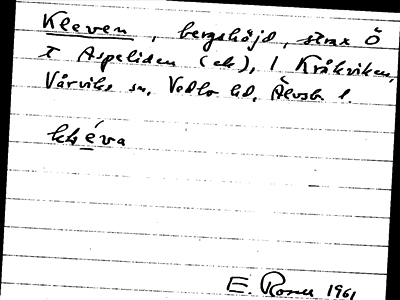 Kleven, bergshöjd, strax Ö
t Aspeliden (ek), i Kråkviken,
Vårviks sn, Vedbo hd, Älvsb l.
kléva
E. Rosell 1961